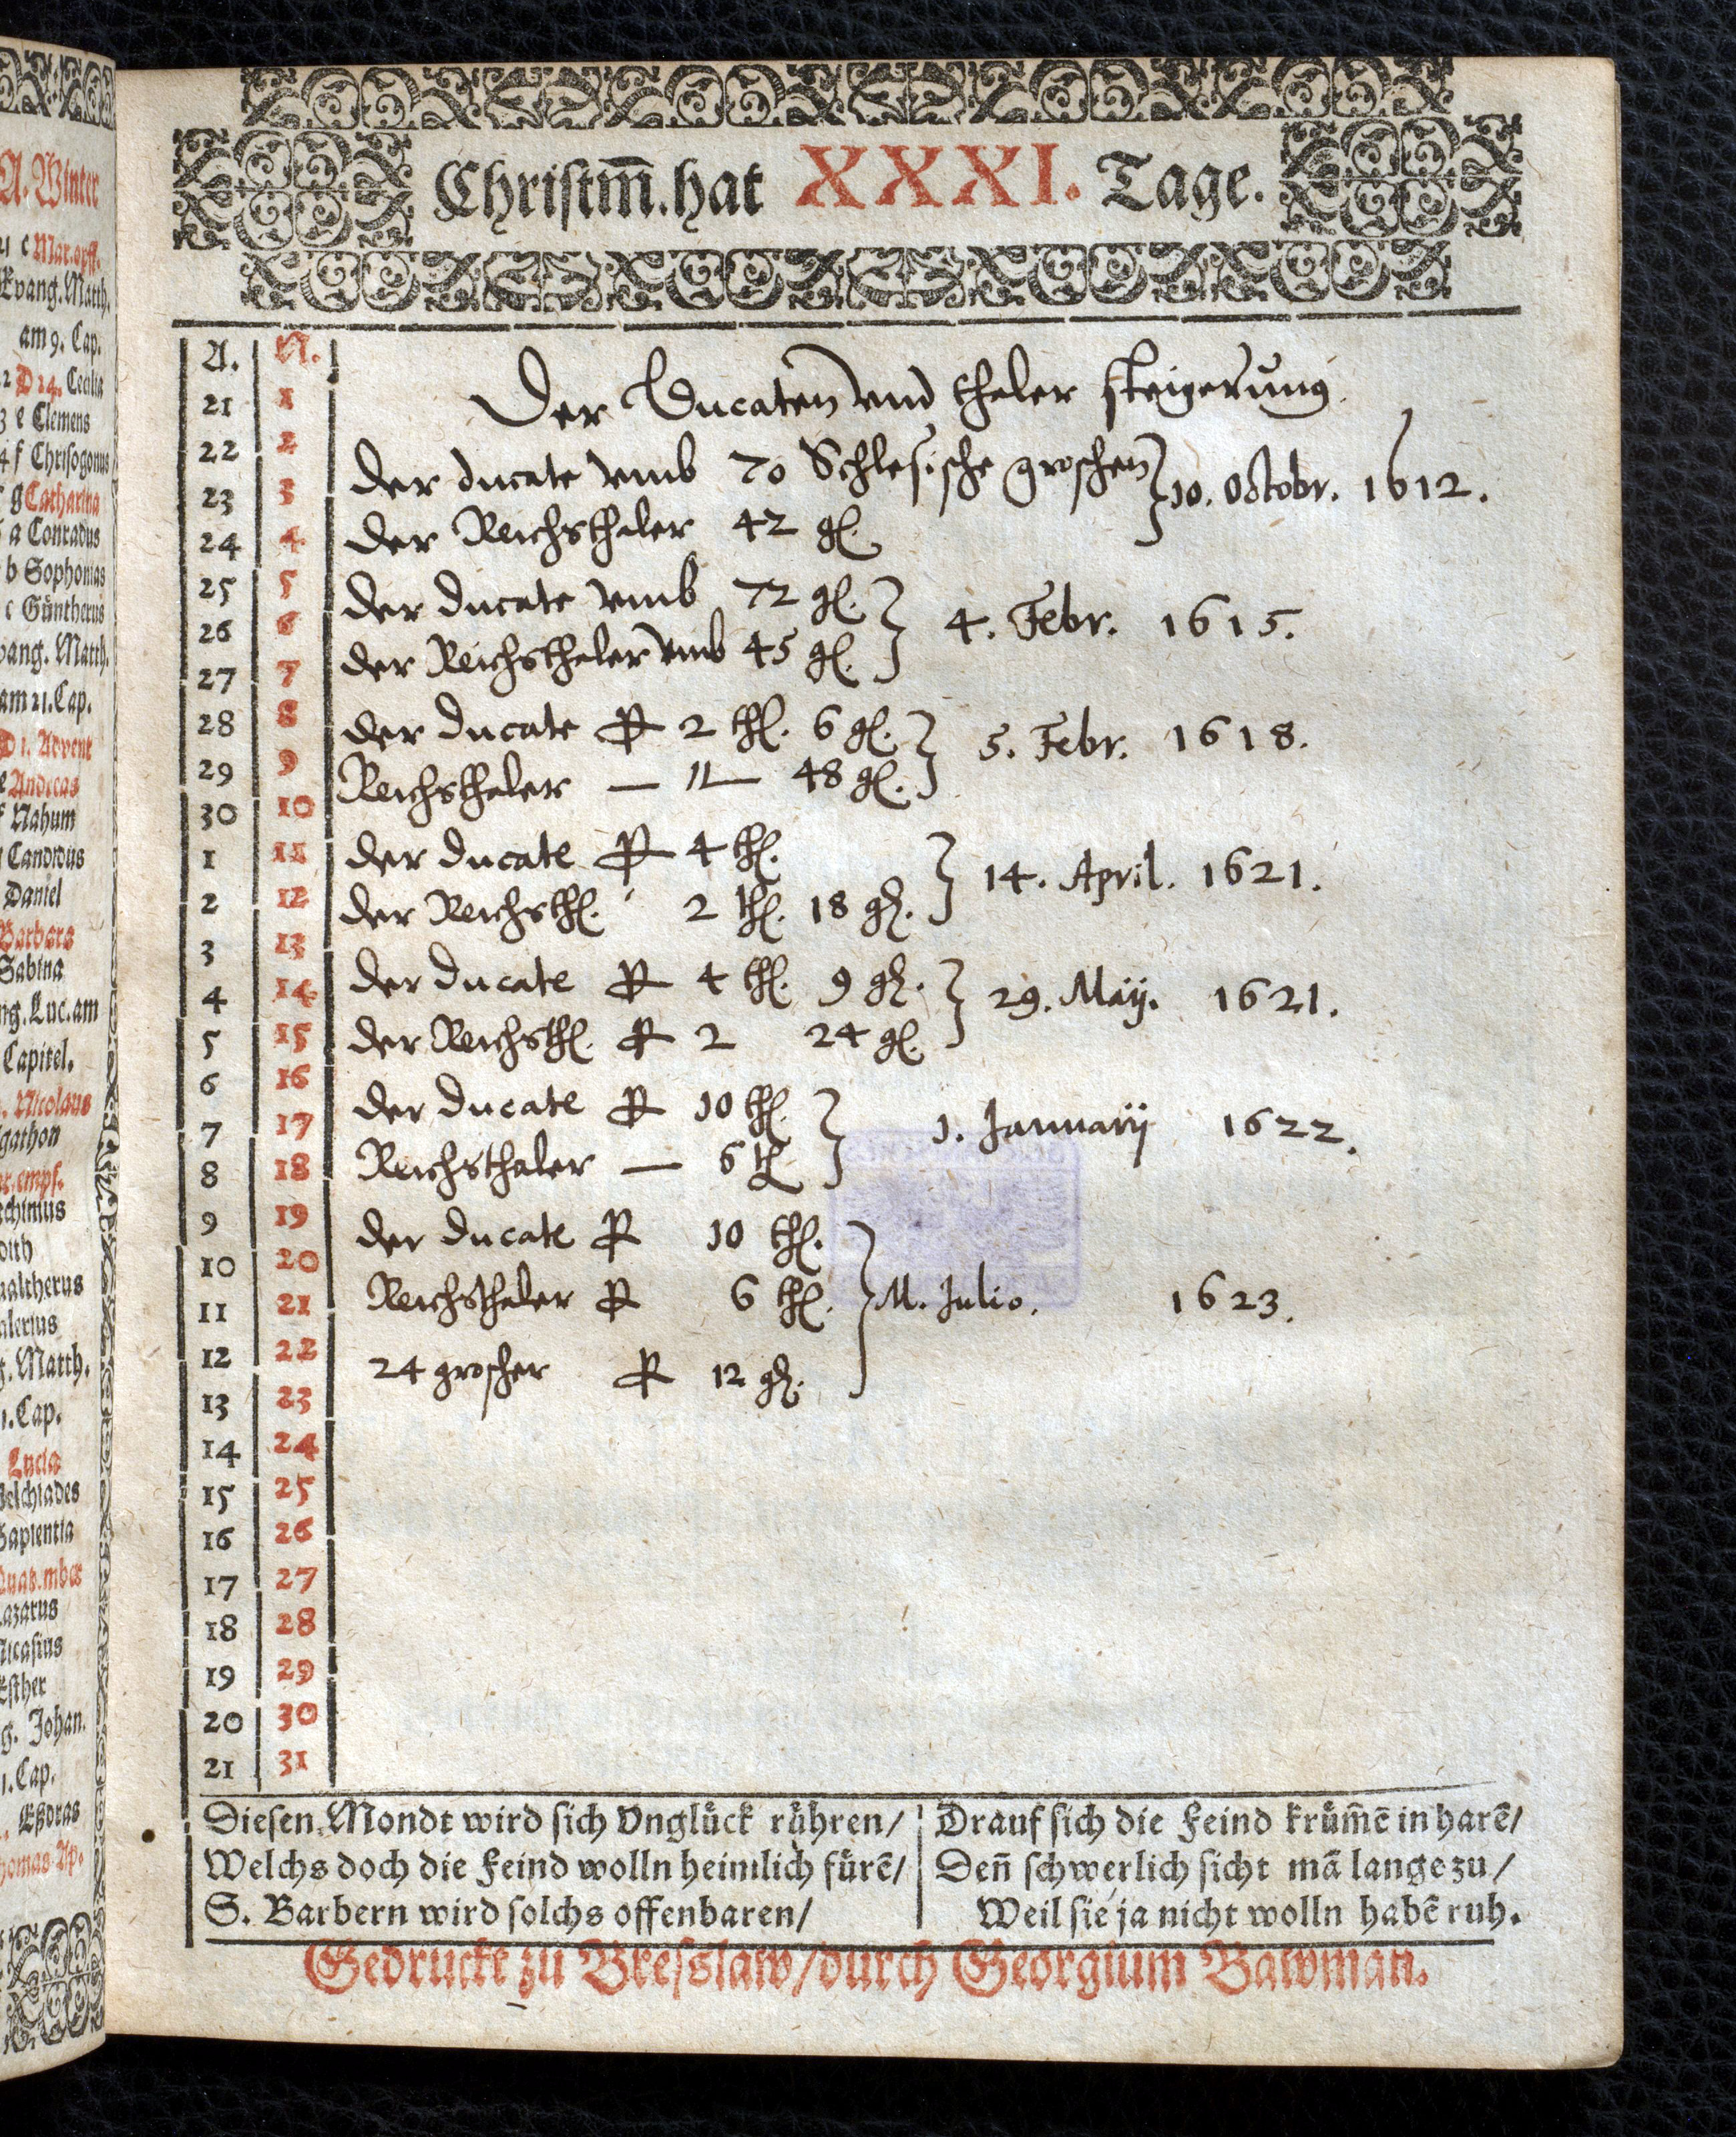 A. Winter
21 c Mar. opff.
Evang. Matth.
am 9. Cap.
22 D 24. Cecilia
3 e Clemens
4 f Chrisogonus
g Catharina
a Conradus
b Sophonias
c Güntherus
vang. Matth.
am 21. Cap.
D 1. Advent
e Andreas
f Nahum
Candidus
Daniel
Barbara
Sabina
ng. Luc. am
Capitel.
. Nicolaus
gathon
r. empf.
chimus
dith
altherus
alerius
g. Matth.
1. Cap.
Lucia
elchiades
Sapientia
Quat.mber
azarus
Nicasius
Esther
g. Johan.
1. Cap.
Eßdras
homas Ap.
Christm̄. hat XXXI. Tage.
A. N.
21 1
22 2
23 3
24 4
25 5
26 6
27 7
28 8
29 9
30 10
1 11
2 12
3 13
4 14
5 15
6 16
7 17
8 18
9 19
10 20
11 21
12 22
13 23
14 24
15 25
16 26
17 27
18 28
19 29
20 30
21 31
Der Ducaten vnd thaler steigerung.
Der ducate vmb 70 Schlesische groschen } 10. Octobr. 1612.
Der Reichsthaler 42 gl.
Der ducate vmb 72 gl. } 4. Febr. 1615.
der Reichsthaler vmb 45 gl.
der ducate P 2 thl. 6 gl. } 5. Febr. 1618.
Reichsthaler — 11 — 48 gl.
der ducate P 4 thl. } 14. April. 1621.
der Reichsthl. 2 thl. 18 gl.
der ducate P 4 thl. 9 gl. } 29. Maÿ. 1621.
der Reichsthl. P 2 24 gl.
der ducate P 10 thl. } 1. Januarÿ 1622.
Reichsthaler — 6 tl
der ducate P 10 thl.
Reichsthaler P 6 thl. } M. Julio. 1623.
24 groscher P 12 gl.
Diesen Mondt wird sich Vnglück rühren/
Welchs doch die Feind wolln heimlich fürē/
S. Barbern wird solchs offenbaren/
Drauf sich die Feind krüm̄ē in harē/
Den̄ schwerlich sicht mā lange zu/
Weil sie ja nicht wolln habē ruh.
Gedruckt zu Bresslaw/durch Georgium Bawman.